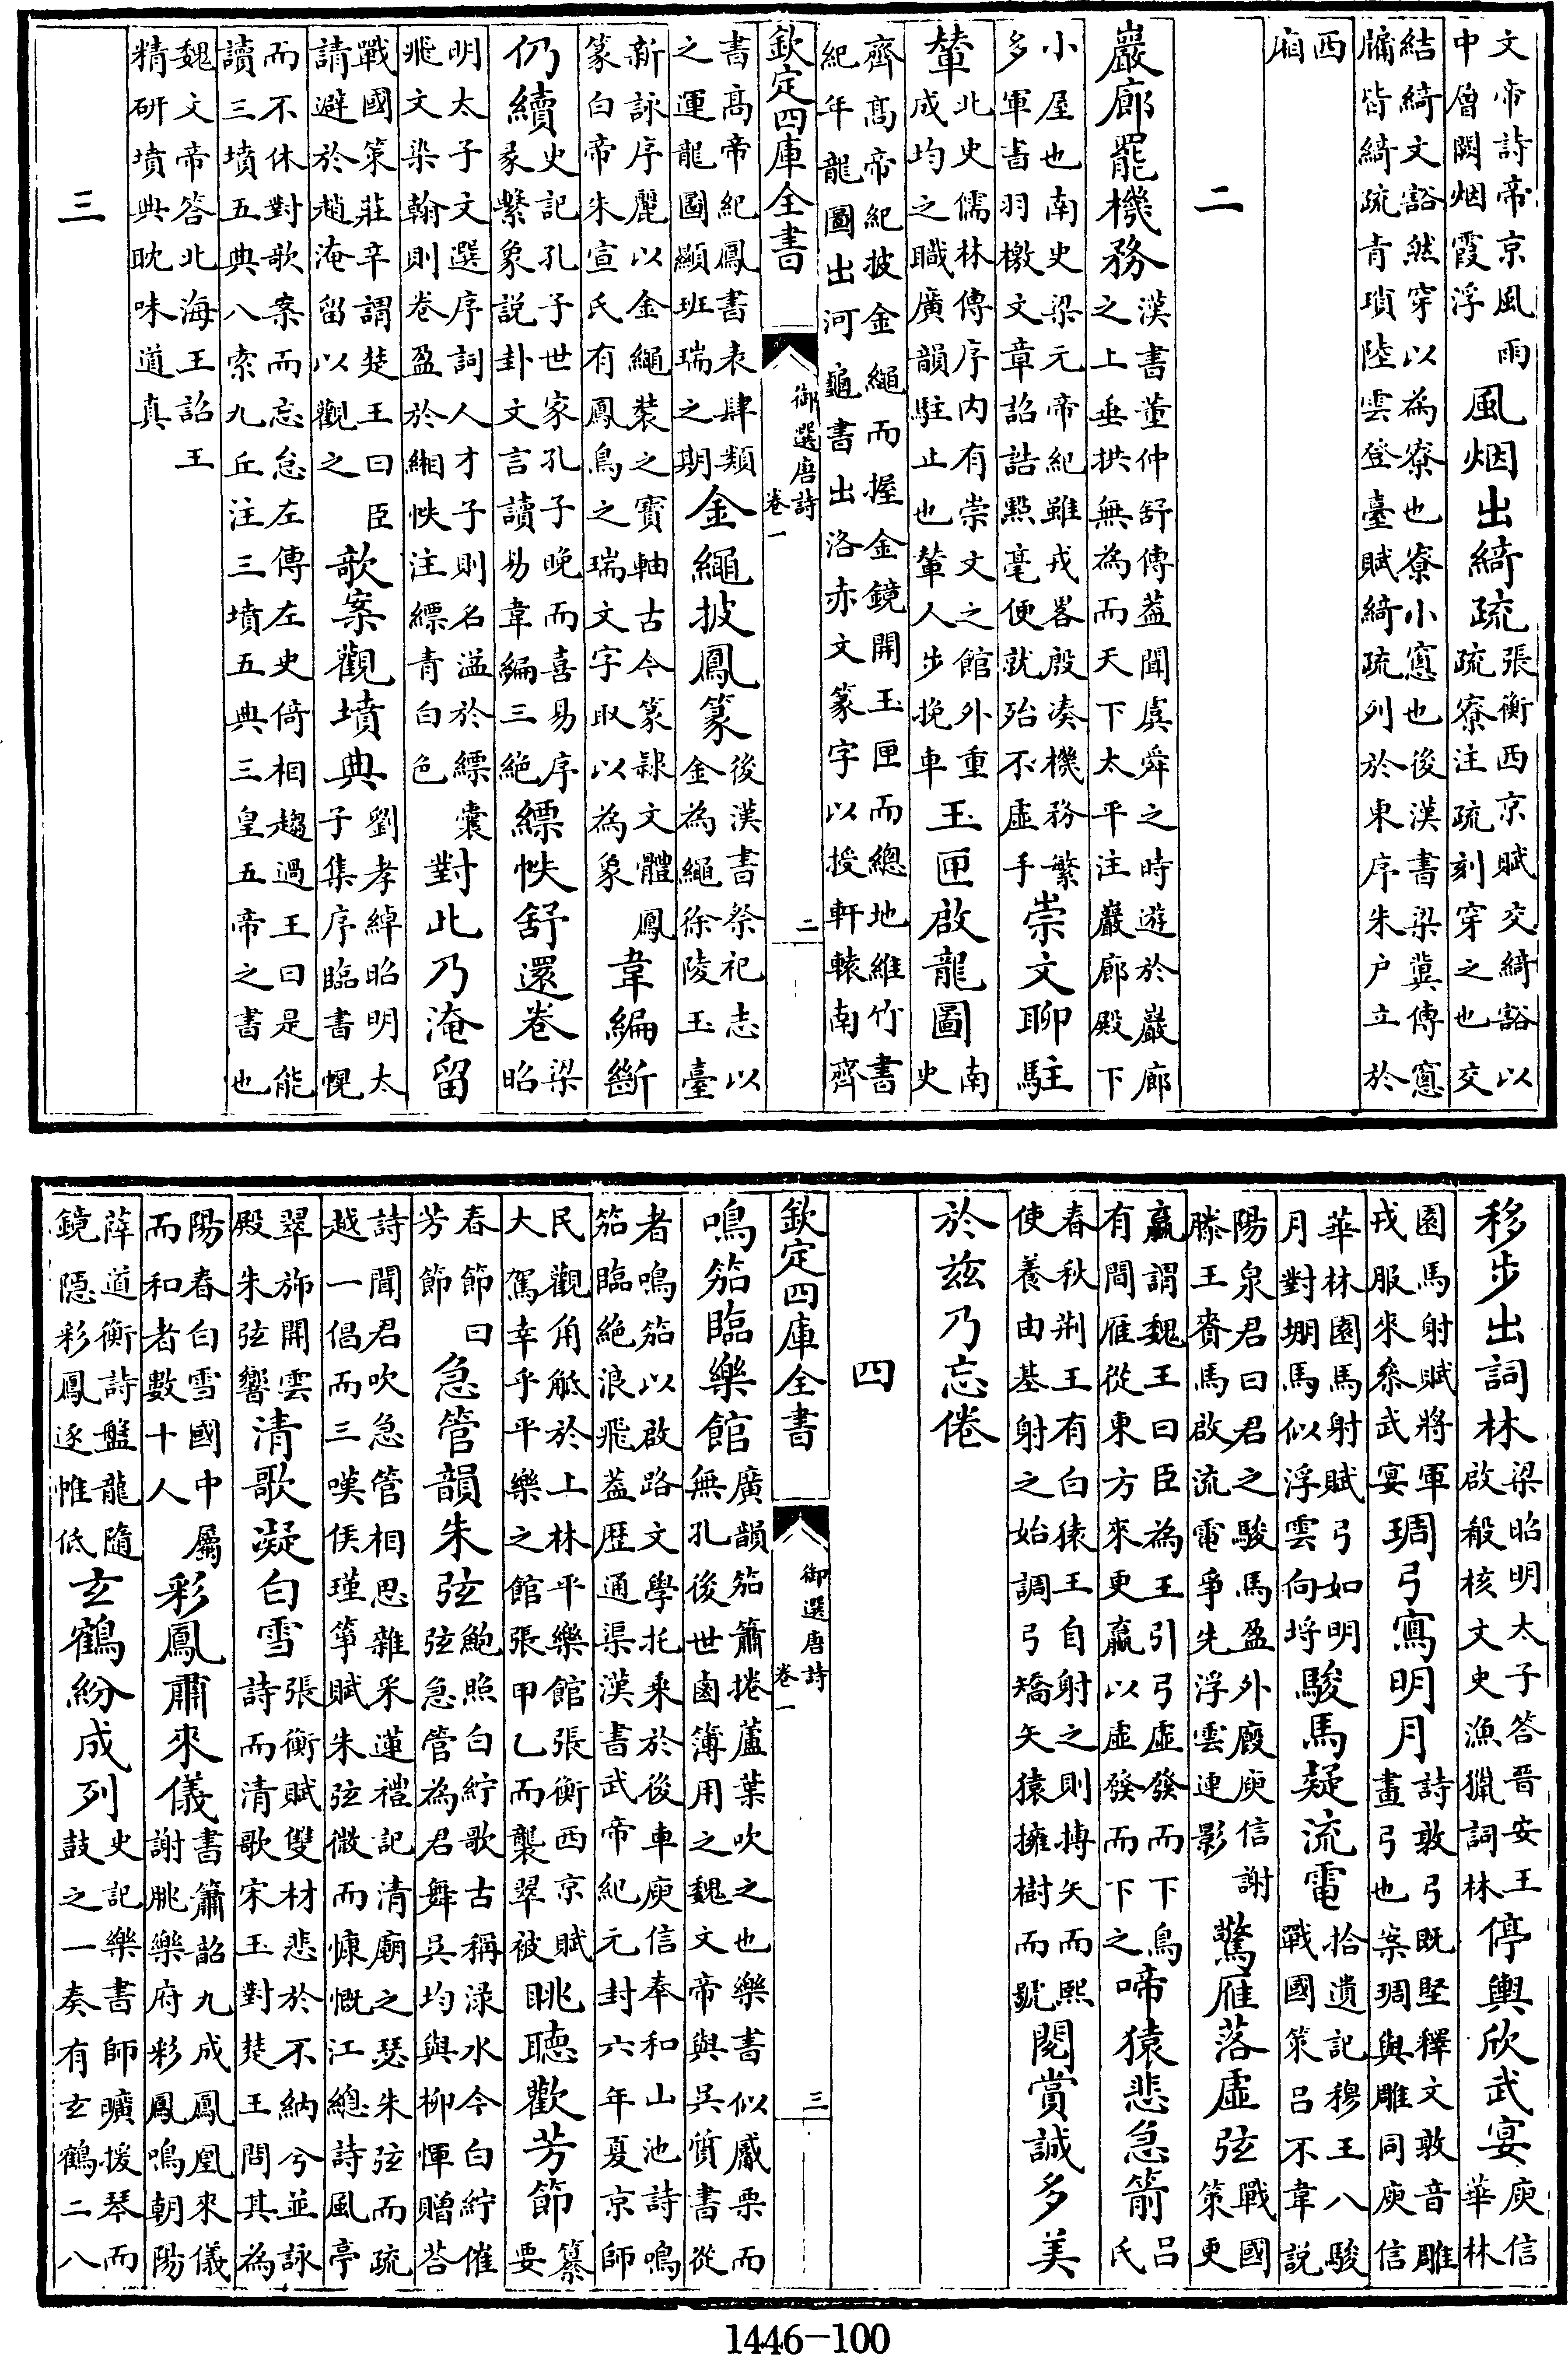 文帝詩帝京風雨
中曾闕烟霞浮
風烟出綺疏
張衡西京賦交綺豁以
疏寮注疏刻穿之也交
結綺文豁然穿以為寮也寮小窻也後漢書梁冀傳窻
牖皆綺疏青瑣陸雲登臺賦綺疏列於東序朱户立於
西
廂
二
巖廊罷機務
漢書董仲舒傳葢聞虞舜之時遊於巖廊
之上垂拱無為而天下太平注巖廊殿下
小屋也南史梁元帝紀雖戎畧殷湊機務繁
多軍書羽檄文章詔誥點毫便就殆不虛手
崇文聊駐
輦
北史儒林傳序内有崇文之館外重
成均之職廣韻駐止也輦人步挽車
玉匣啟龍圖
南
史
齊髙帝紀披金繩而握金鏡開玉匣而總地維竹書
紀年龍圖出河龜書出洛赤文篆字以授軒轅南齊
欽定四庫全書
御選唐詩
卷一
二
書髙帝紀鳳書表肆類
之運龍圖顯班瑞之期
金繩披鳳篆
後漢書祭祀志以
金為繩徐陵玉臺
新詠序麗以金繩裝之寳軸古今篆隸文體鳳
篆白帝朱宣氏有鳳鳥之瑞文字取以為象
韋編斷
仍續
史記孔子世家孔子晚而喜易序
彖繫象説卦文言讀易韋編三絶
縹帙舒還卷
梁
昭
明太子文選序詞人才子則名溢於縹囊
飛文染翰則卷盈於緗帙注縹青白色
對此乃淹留
戰國策莊辛謂楚王曰臣
請避於趙淹留以觀之
欹案觀墳典
劉孝綽昭明太
子集序臨書幌
而不休對欹案而忘怠左傳左史倚相趨過王曰是能
讀三墳五典八索九丘注三墳五典三皇五帝之書也
魏文帝答北海王詔王
精研墳典耽味道真
三
移步出詞林
梁昭明太子答晉安王
啟殽核文史漁獵詞林
停輿欣武宴
庾信
華林
園馬射賦將軍
戎服來參武宴
琱弓寫明月
詩敦弓既堅釋文敦音雕
畫弓也案琱與雕同庾信
華林園馬射賦弓如明
月對堋馬似浮雲向埒
駿馬疑流電
拾遺記穆王八駿
戰國策吕不韋説
陽泉君曰君之駿馬盈外廄庾信謝
滕王賚馬啟流電爭先浮雲連影
驚雁落虛弦
戰國
策更
羸謂魏王曰臣為王引弓虛發而下鳥
有間雁從東方來更羸以虛發而下之
啼猿悲急箭
吕
氏
春秋荆王有白猿王自射之則搏矢而熙
使養由基射之始調弓矯矢猿擁樹而號
閱賞誠多美
於兹乃忘倦
四
欽定四庫全書
御選唐詩
卷一
三
鳴笳臨樂館
廣韻笳簫捲蘆葉吹之也樂書似觱栗而
無孔後世鹵簿用之魏文帝與吳質書從
者鳴笳以啟路文學托乘於後車庾信奉和山池詩鳴
笳臨絶浪飛葢歴通渠漢書武帝紀元封六年夏京師
民觀角觝於上林平樂館張衡西京賦
大駕幸乎平樂之館張甲乙而襲翠被
眺聽歡芳節
纂
要
春節曰
芳節
急管韻朱弦
鮑照白紵歌古稱渌水今白紵催
弦急管為君舞吳均與柳惲贈答
詩聞君吹急管相思雜采蓮禮記清廟之瑟朱弦而疏
越一倡而三嘆侯瑾箏賦朱弦微而慷慨江總詩風亭
翠旆開雲
殿朱弦響
清歌凝白雪
張衡賦雙材悲於不納兮並詠
詩而清歌宋玉對楚王問其為
陽春白雪國中屬
而和者數十人
彩鳳肅來儀
書簫韶九成鳳凰來儀
謝朓樂府彩鳳鳴朝陽
薛道衡詩盤龍隨
鏡隱彩鳳逐帷低
玄鶴紛成列
史記樂書師曠援琴而
鼓之一奏有玄鶴二八
1446-100